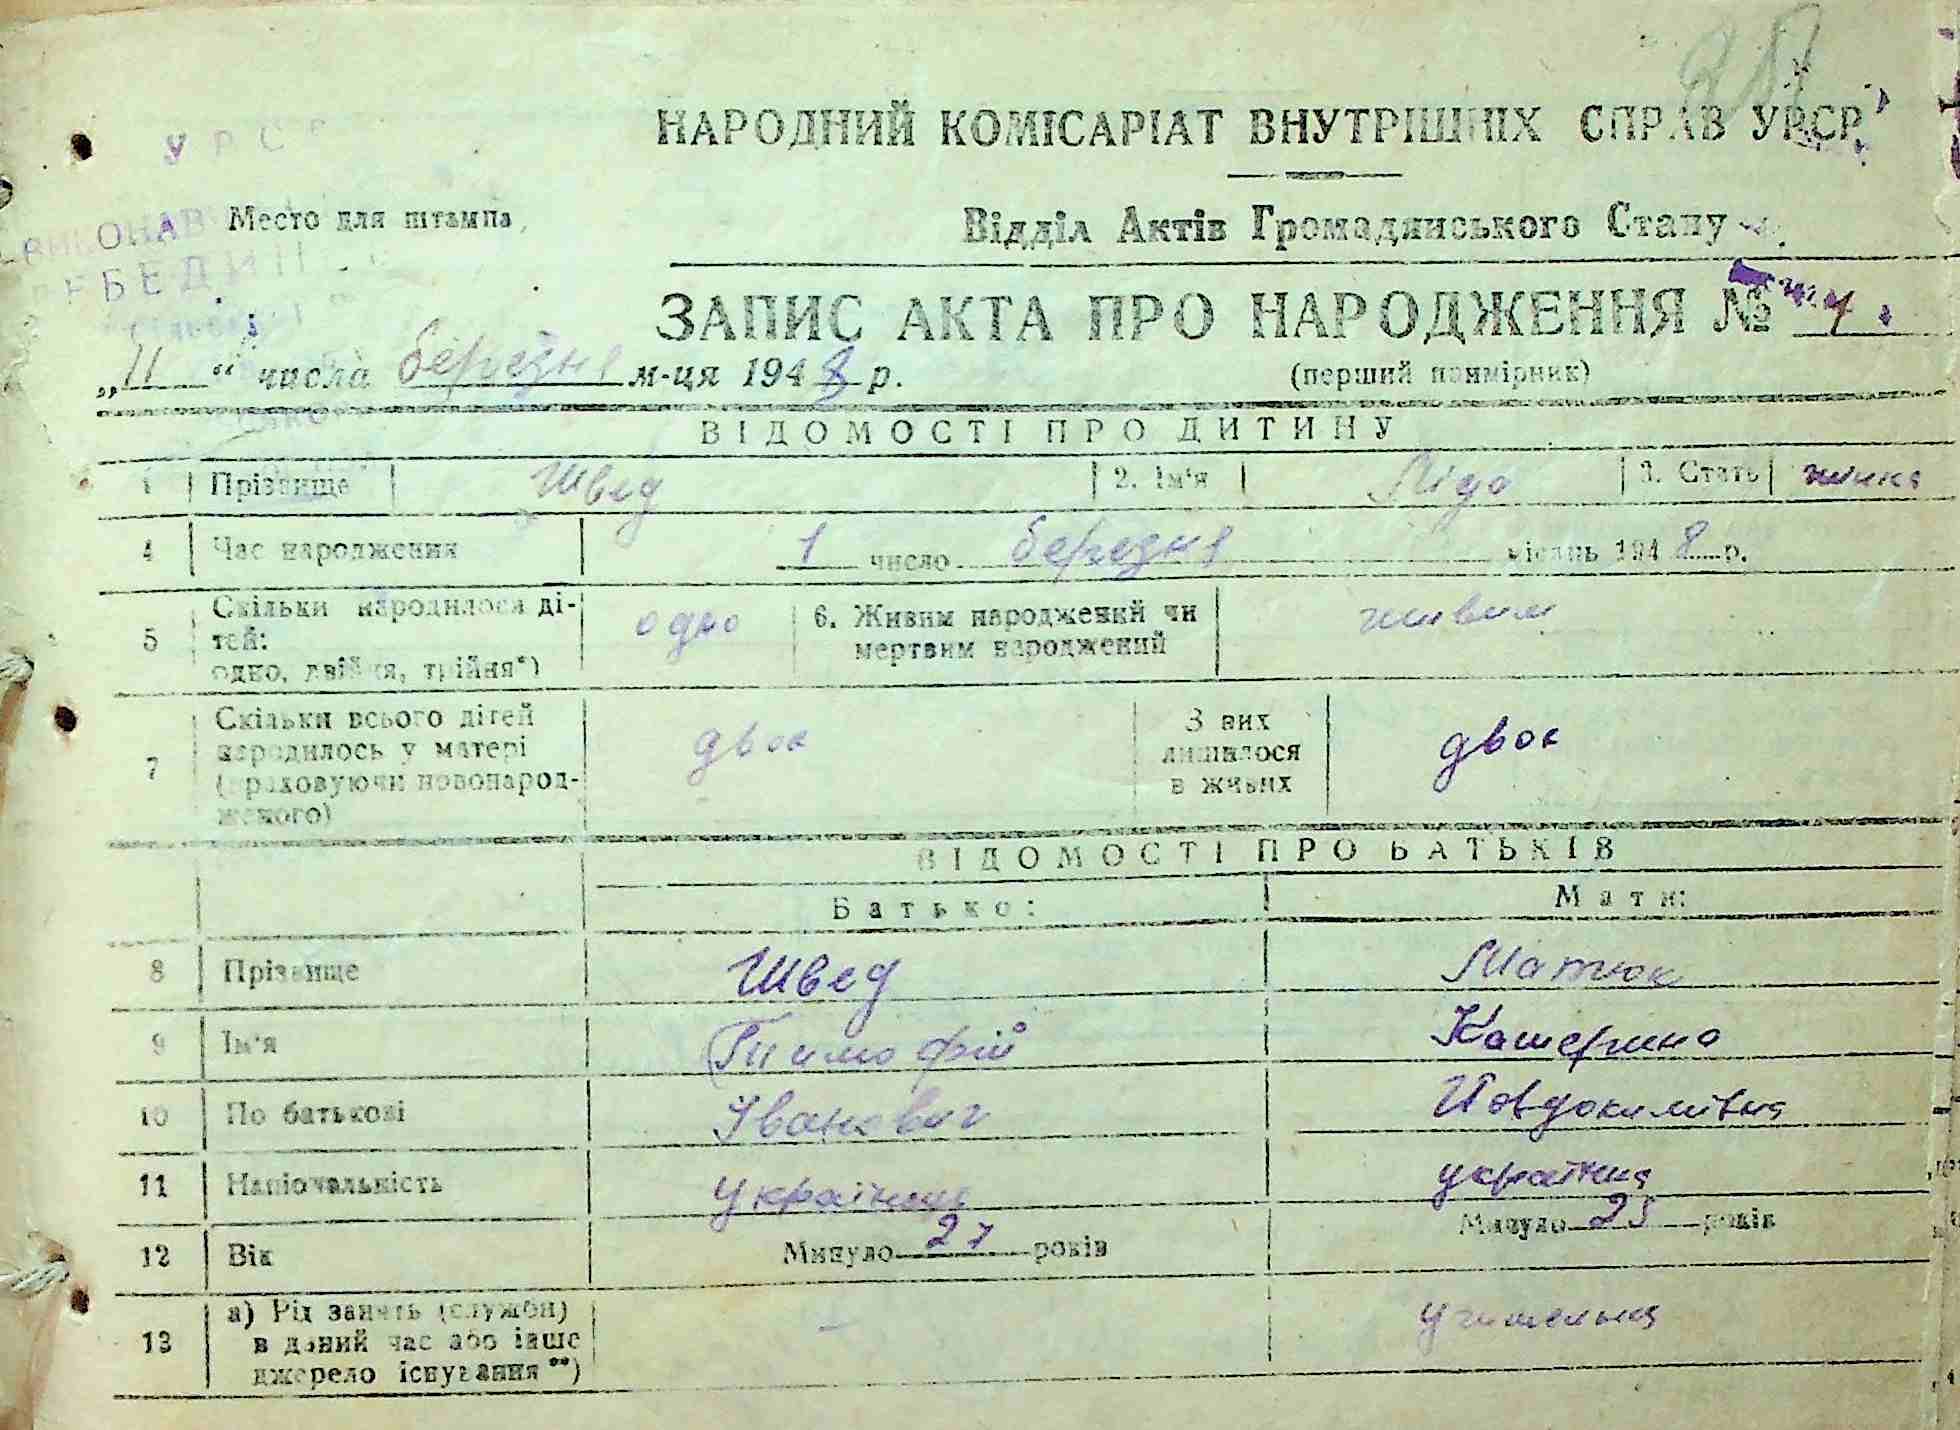 НАРОДНИЙ КОМІСАРІАТ ВНУТРІШНІХ СПРАВ УРСР
УРСР
Место для штампа
Відділ Актів Громадянського Стану
ЗАПИС АКТА ПРО НАРОДЖЕННЯ № 4
„11“ числа березня м-ця 1948 р.
(перший примірник)
ВІДОМОСТІ ПРО ДИТИНУ
1 Прізвище Швед 2. Ім'я Ліда 3. Стать жінка
4 Час народження 1 число березня місяць 1948 р.
5 Скільки народилося ді-
тей:
одно, двійня, трійня*) одно 6. Живим народжений чи
мертвим народжений живим
7 Скільки всього дітей
народилось у матері
(враховуючи новонарод-
женого) двое З них
лишилося
в живих двое
ВІДОМОСТІ ПРО БАТЬКІВ
Батько: Мати:
8 Прізвище Швед Матюк
9 Ім'я Тимофій Катерина
10 По батькові Іванович Йовдокимівна
11 Національність українець українка
12 Вік Минуло 27 років Минуло 25 років
13 а) Рід занять (служби)
в даний час або інше
джерело існування**) – учителька